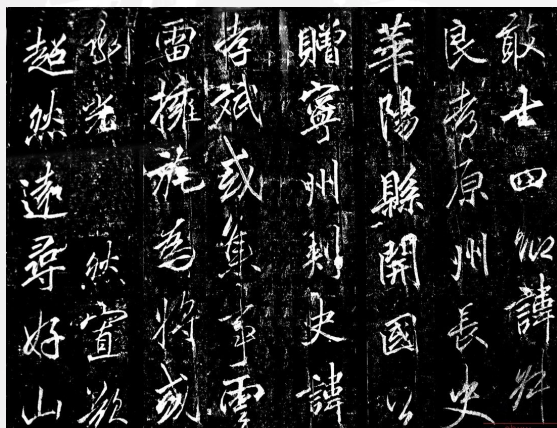 士四諱
良考原州長史
華陽縣開國公
贈寧州刺史諱
孝斌或集事雲
雷擁旄為將或
光然寘
超然遠尋好山